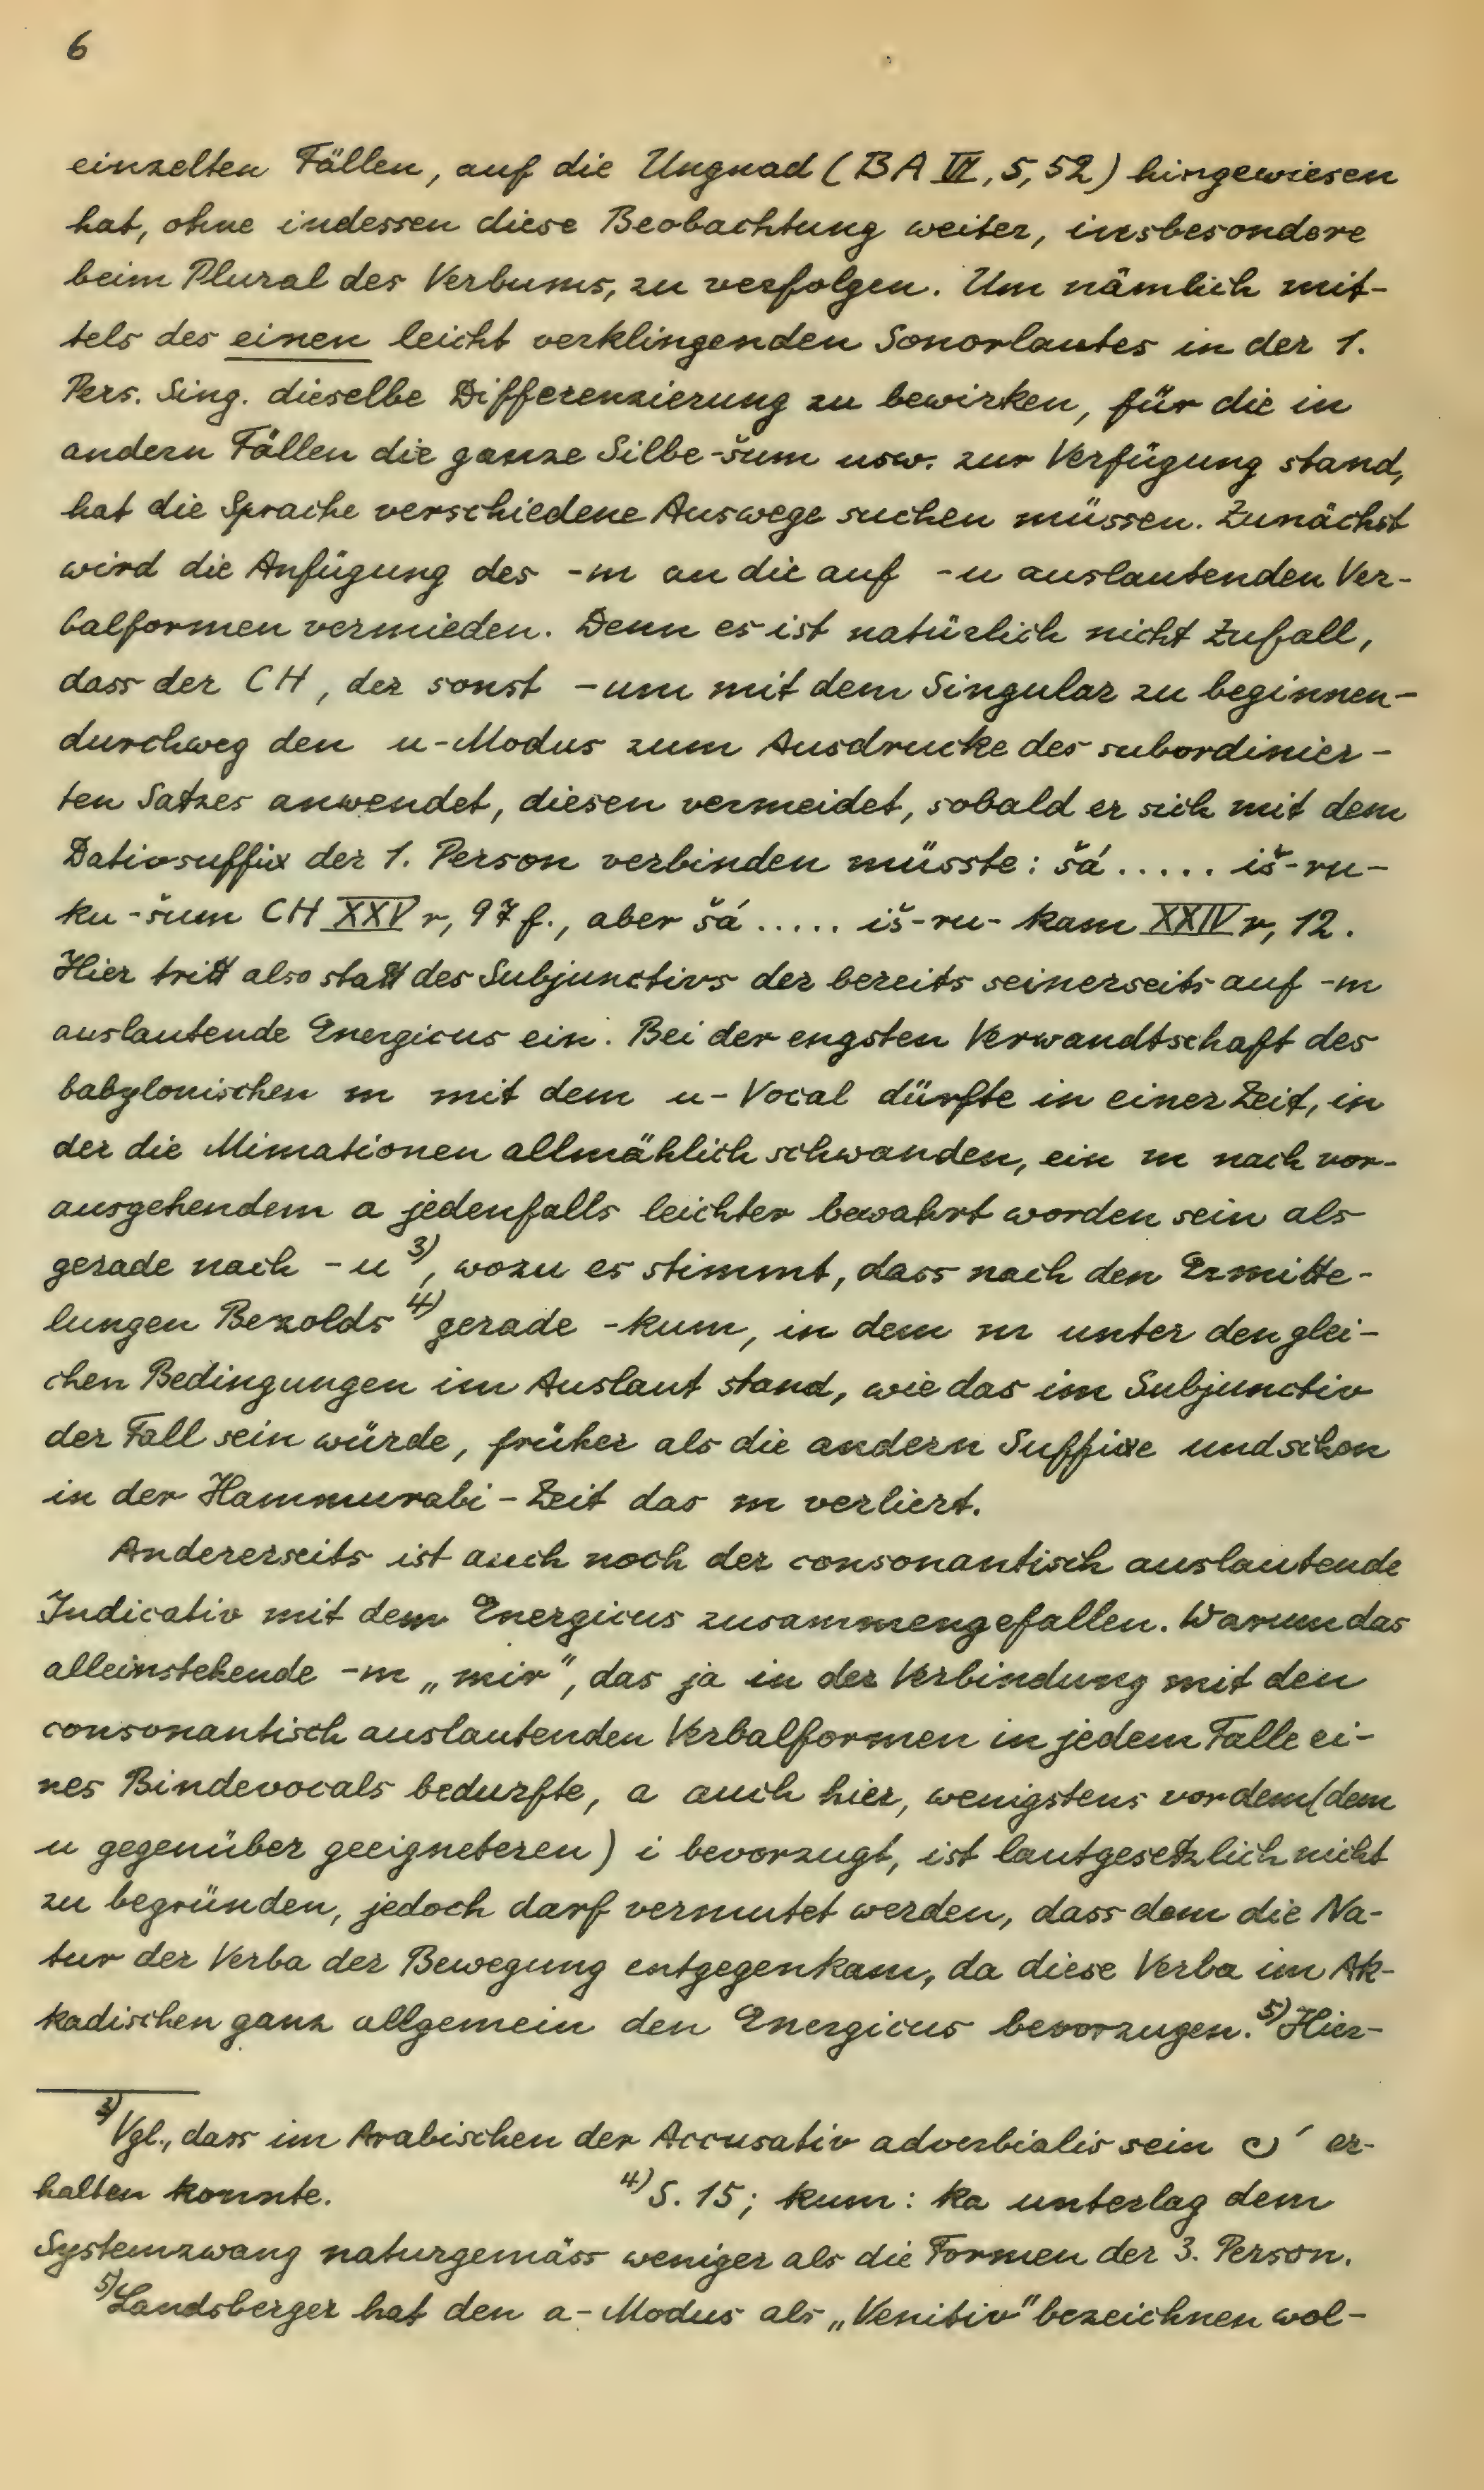 6
einzelten Fällen, auf die Ungnad (BA VI, 5, 52) hingewiesen
hat, ohne indessen diese Beobachtung weiter, insbesondere
beim Plural des Verbums, zu verfolgen. Um nämlich mit-
tels des einen leicht verklingenden Sonorlautes in der 1.
Pers. Sing. dieselbe Differenzierung zu bewirken, für die in
andern Fällen die ganze Silbe -šum usw. zur Verfügung stand,
hat die Sprache verschiedene Auswege suchen müssen. Zunächst
wird die Anfügung des -m an die auf -u auslautenden Ver-
balformen vermieden. Denn es ist natürlich nicht Zufall,
dass der CH, der sonst -um mit dem Singular zu beginnen-
durchweg den u-Modus zum Ausdrucke des subordinier-
ten Satzes anwendet, diesen vermeidet, sobald er sich mit dem
Dativsuffix der 1. Person verbinden müsste: šá ..... iš-ru-
ku-šum CH XXV r, 97 f., aber šá ..... iš-ru-kam XXIV r, 12.
Hier tritt also statt des Subjunctivs der bereits seinerseits auf -m
auslautende Energicus ein. Bei der engsten Verwandtschaft des
babylonischen m mit dem u-Vocal dürfte in einer Zeit, in
der die Mimationen allmählich schwanden, ein m nach vor-
ausgehendem a jedenfalls leichter bewahrt worden sein als
gerade nach -u 3), wozu es stimmt, dass nach den Ermitte-
lungen Bezolds 4) gerade -kum, in dem m unter den glei-
chen Bedingungen im Auslaut stand, wie das im Subjunctiv
der Fall sein würde, früher als die andern Suffixe und schon
in der Hammurabi-Zeit das m verliert.
Andererseits ist auch noch der consonantisch auslautende
Indicativ mit dem Energicus zusammengefallen. Warum das
alleinstehende -m „mir", das ja in der Verbindung mit den
consonantisch auslautenden Verbalformen in jedem Falle ei-
nes Bindevocals bedurfte, a auch hier, wenigstens vor dem (dem
u gegenüber geeigneteren) i bevorzugt, ist lautgesetzlich nicht
zu begründen, jedoch darf vermutet werden, dass dem die Na-
tur der Verba der Bewegung entgegenkam, da diese Verba im Ak-
kadischen ganz allgemein den Energicus bevorzugen. 5) Hier-
3) Vgl., dass im Arabischen der Accusativ adverbialis sein er-
halten konnte. 4) S. 15; kum: ka unterlag dem
Systemzwang naturgemäss weniger als die Formen der 3. Person.
5) Landsberger hat den a-Modus als „Venitiv" bezeichnen wol-